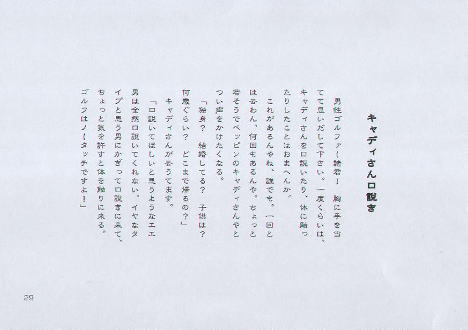 キャディさん口説き
男性ゴルファー諸君！　胸に手を当
てて思いだして下さい。一度くらいは、
キャディさんを口説いたり、体に触っ
たりしたことはおまへんか。
これがあるんやね、誰でも。一回と
は言わん、何回もあるんや。ちょっと
若そうでベッピンのキャディさんやと
つい声をかけたくなる。
「独身？　結婚してる？　子供は？
何歳ぐらい？　どこまで帰るの？」
キャディさんが言うてます。
「口説いてほしいと思うようなエエ
男は全然口説いてくれない。イヤなタ
イプと思う男にかぎって口説きに来て、
ちょっと気を許すと体を触りに来る。
ゴルフはノータッチですよ！」
29